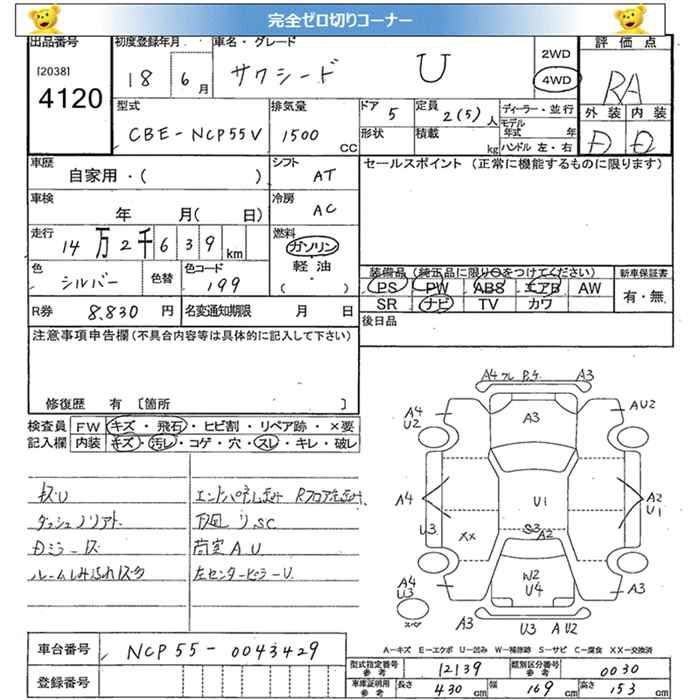 完全ゼロ切りコーナー
出品番号
[2038]
4120
初度登録年月
18 6月
車名・グレード
サクシード U
2WD
4WD
評価点
RA
外装 内装
D D
型式
CBE-NCP55V
排気量
1500 cc
ドア 5
形状
定員 2(5)人
積載 kg
ディーラー・並行
モデル年式 年
ハンドル 左・右
車歴
自家用・( )
シフト
AT
車検
年 月( 日)
冷房
AC
走行
14万2千639km
燃料
ガソリン
軽油
・( )
色
シルバー
色替
色コード
199
R券 8,830円
名変通知期限 月 日
セールスポイント (正常に機能するものに限ります)
装備品 (純正品に限り○をつけてください)
PS PW ABS エアB AW
SR ナビ TV カワ
新車保証書
有・無
後日品
注意事項申告欄(不具合内容等は具体的に記入して下さい)
修復歴 有 [箇所 ]
検査員記入欄
FW キズ・飛石・ヒビ割・リペア跡・×要
内装 キズ・汚レ・コゲ・穴・スレ・キレ・破レ
ダッシュノリアト
Dミラーキズ
下廻リSC
荷室AU
左センターピラーU
A4 A3
A3
A4
U2
AU2
A4
U3
A2
U1
U1
XX
S3
A2
W2
U4
A4
U3
スペア
A3
A3 U3 AU2
A−キズ E−エクボ U−凹み W−補修跡 S−サビ C−腐食 XX−交換済
車台番号 NCP55-0043429
登録番号
型式指定番号参考 12139
類別区分番号参考 0030
車庫証明用参考
長さ 430cm 幅 169cm 高さ 153cm